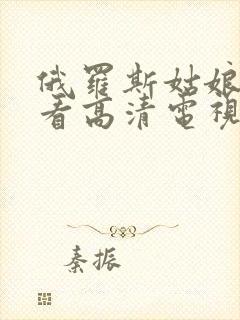 俄羅斯姑娘
看高清電視
秦振